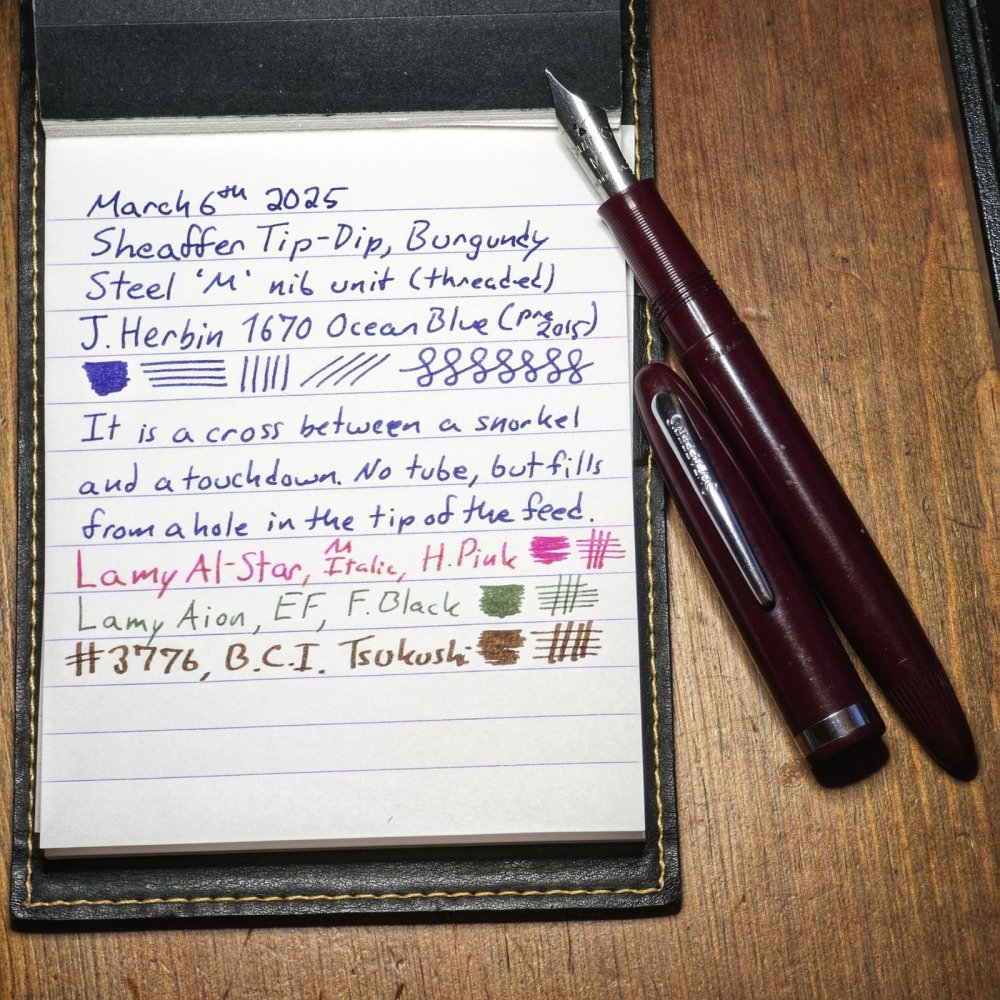 March 6th 2025
Sheaffer Tip-Dip, Burgundy
Steel 'M' nib unit (threaded)
J. Herbin 1670 Ocean Blue (pre 2015)
It is a cross between a snorkel
and a touchdown. No tube, but fills
from a hole in the tip of the feed.
Lamy Al-Star, M Italic, H. Pink
Lamy Aion, EF, F. Black
#3776, B.C.I. Tsukushi
M